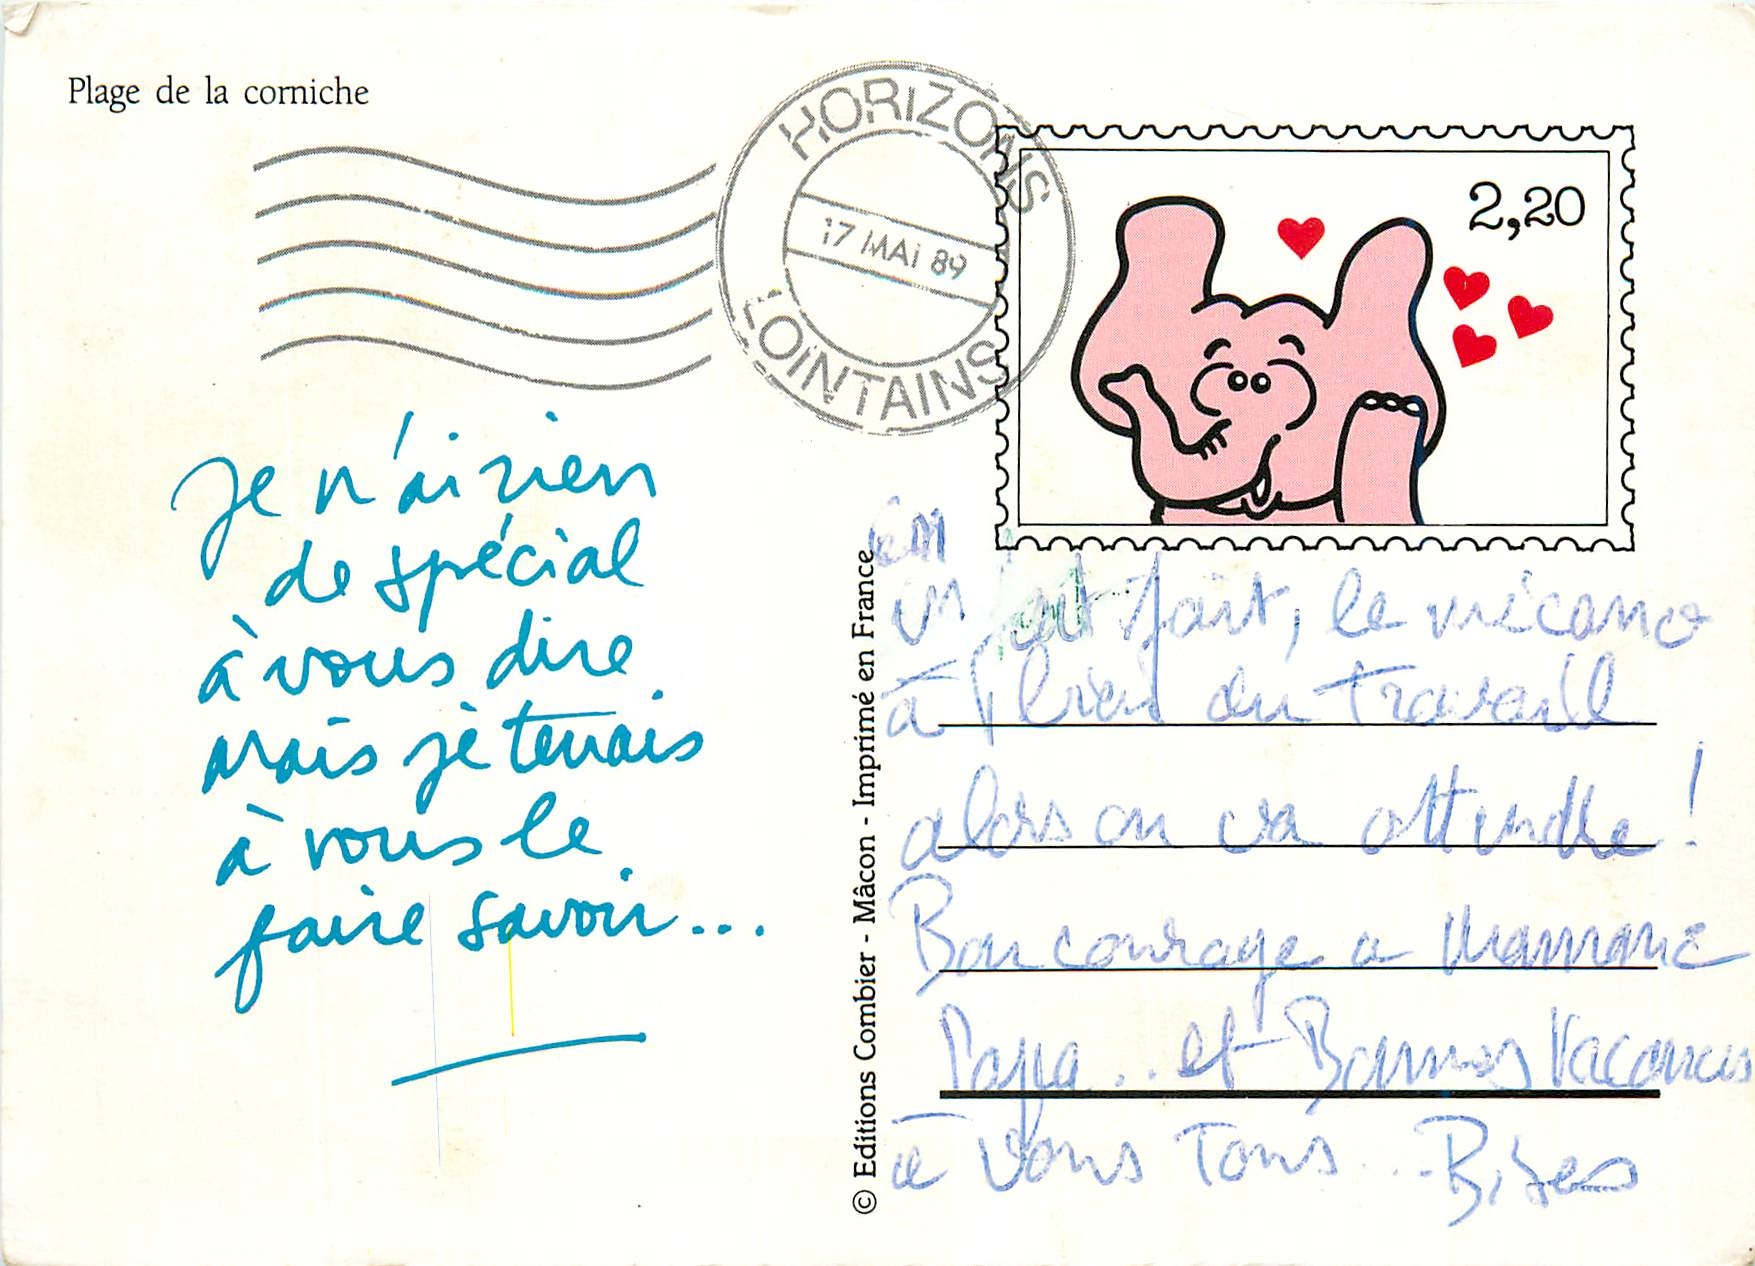 Plage de la corniche
HORIZONS
17 MAI 89
LOINTAINS
2,20
Je n'ai rien
de spécial
à vous dire
mais je tenais
à vous le
faire savoir...
© Editions Combier - Mâcon - Imprimé en France
en
fait, le mécano
à du travail
alors on va attendre !
Bon courage a Mamane
Papa .. et Bonnes Vacances
à Vous Tous ... Bises